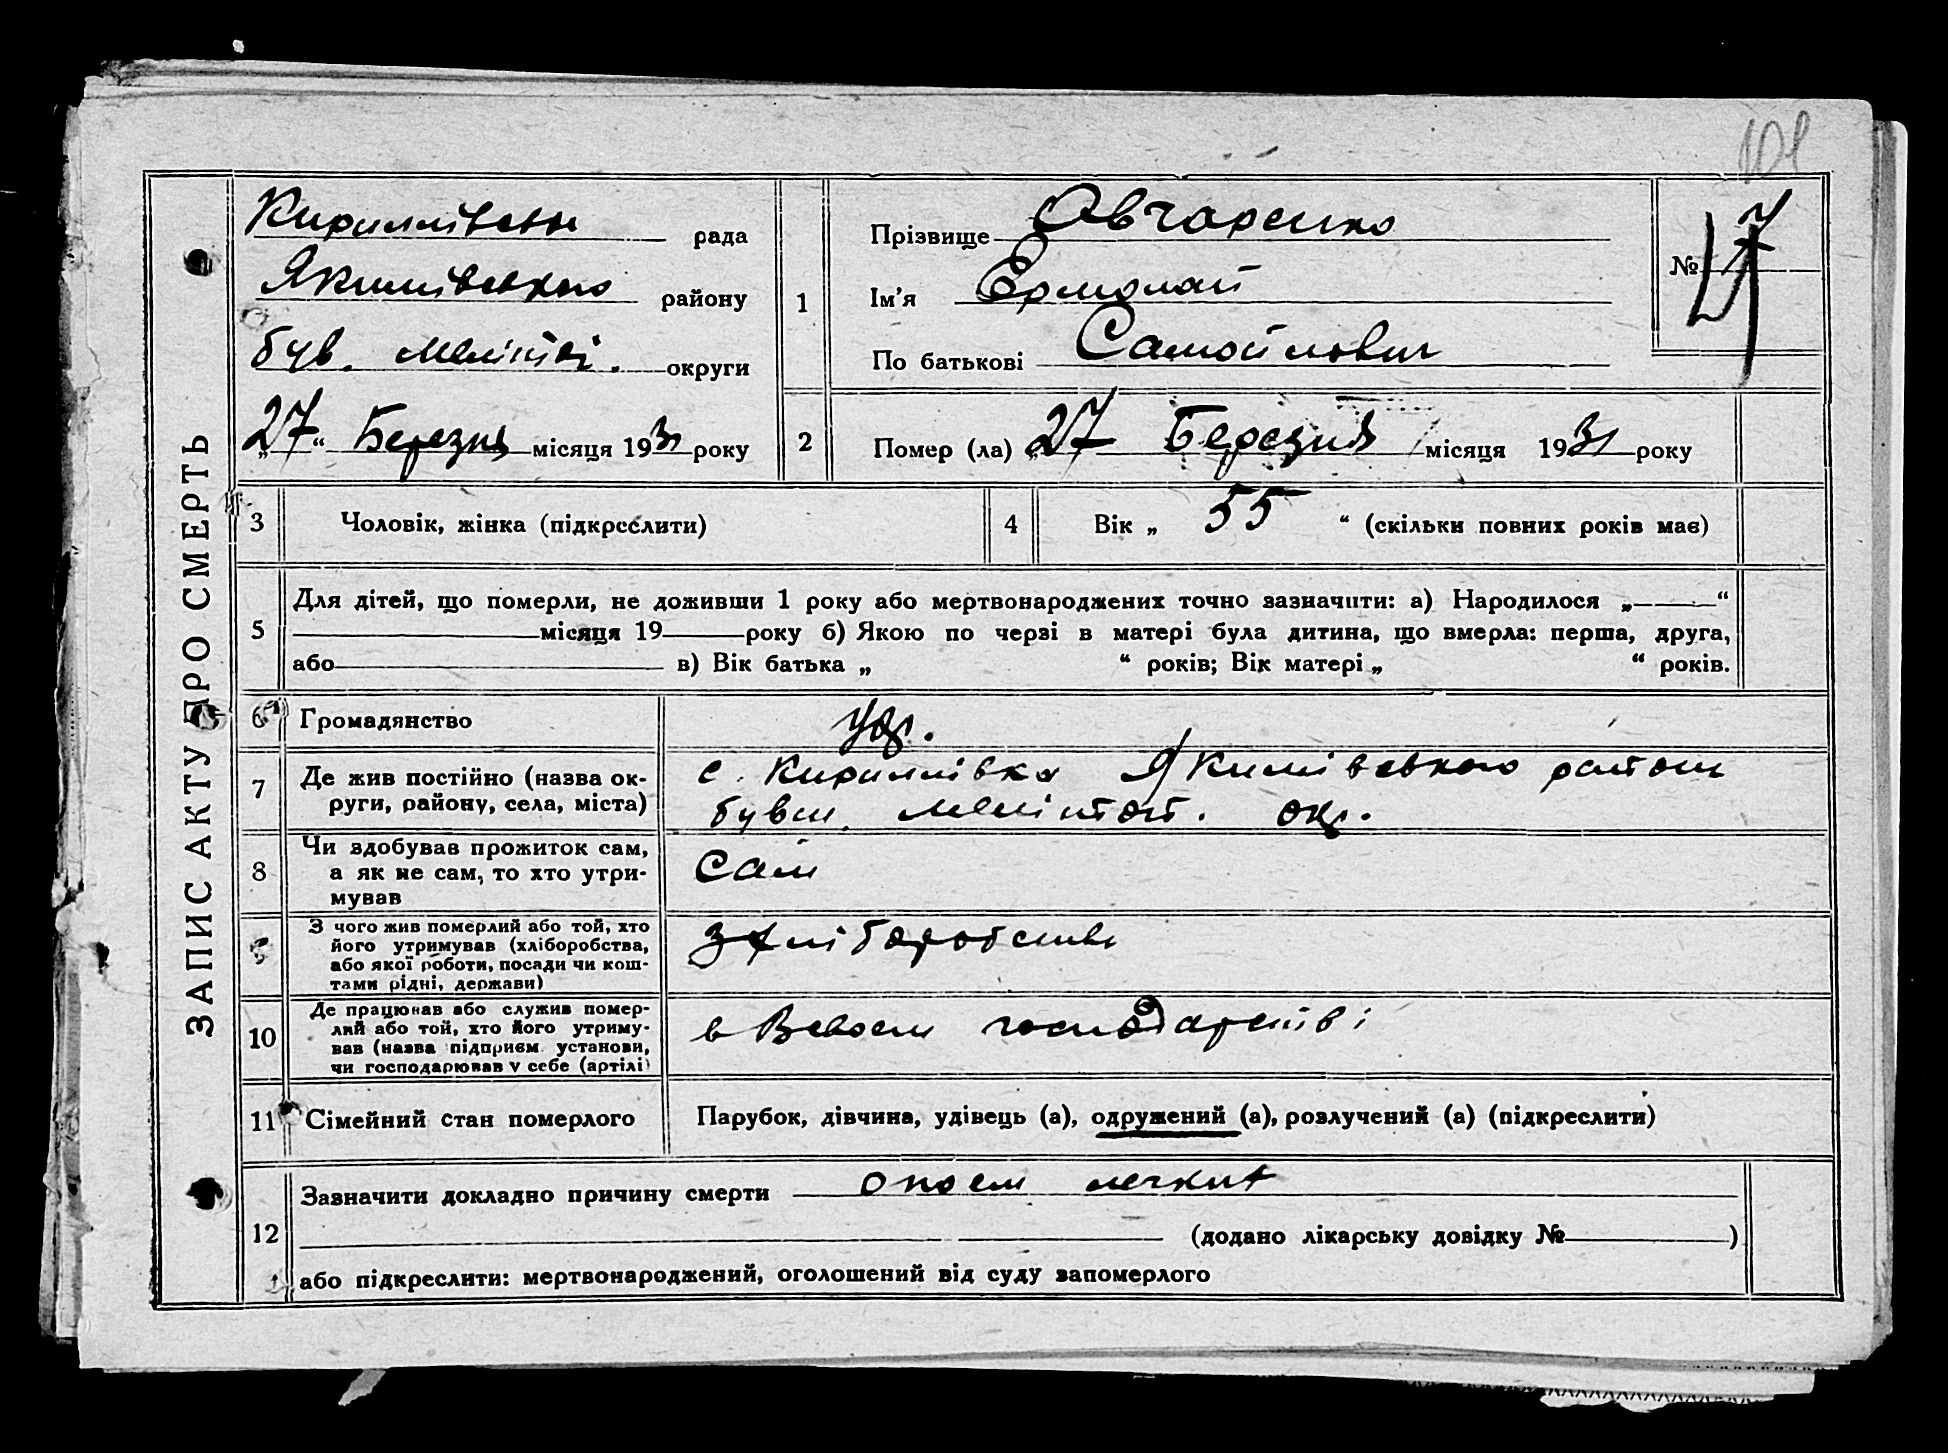 ЗАПИС АКТУ ПРО СМЕРТЬ
101
Кириллівська рада
Якимівського району
був. Меліт. округи
„27“ Березня місяця 1931 року
1
Прізвище Овчаренко
Ім'я Єрмолай
По батькові Самойлович
№ 17
2
Помер (ла) „27 Березня місяця 1931 року
3 Чоловік, жінка (підкреслити)
4 Вік „ 55 “ (скільки повних років має)
5
Для дітей, що померли, не доживши 1 року або мертвонароджених точно зазначити: а) Народилося „ “
місяця 19 року б) Якою по черзі в матері була дитина, що вмерла: перша, друга,
або в) Вік батька „ “ років; Вік матері „ “ років.
6 Громадянство
укр.
7
Де жив постійно (назва ок-
руги, району, села, міста)
с. Кириллівка Якимівського району
бувш. Мелітоп. окр.
8
Чи здобував прожиток сам,
а як не сам, то хто утри-
мував
Сам
З чого жив померлий або той, хто
його утримував (хліборобства,
або якої роботи, посади чи кош-
тами рідні, держави)
з хліборобства
10
Де працював або служив помер-
лий або той, хто його утриму-
вав (назва підприєм. установи,
чи господарював у себе (артілі)
в Своєм господарстві
11 Сімейний стан померлого
Парубок, дівчина, удівець (а), одружений (а), розлучений (а) (підкреслити)
12
Зазначити докладно причину смерти легких
(додано лікарську довідку № )
або підкреслити: мертвонароджений, оголошений від суду запомерлого